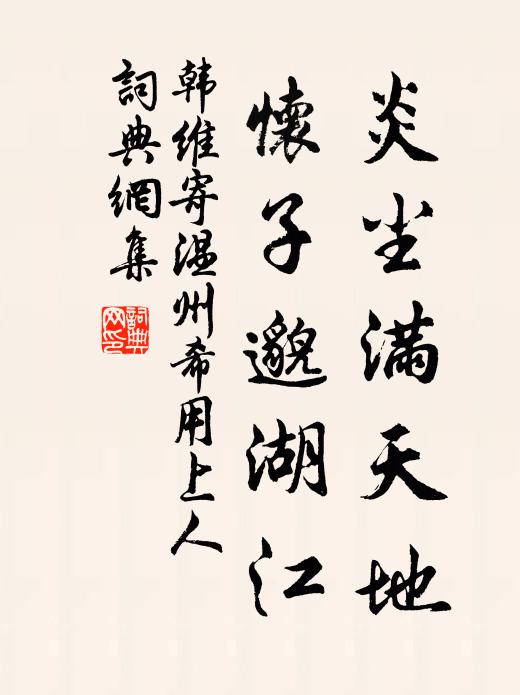 炎尘满天地
懷子邈湖江
韩维寄温州希用上人
詞典網集
詞典
网印